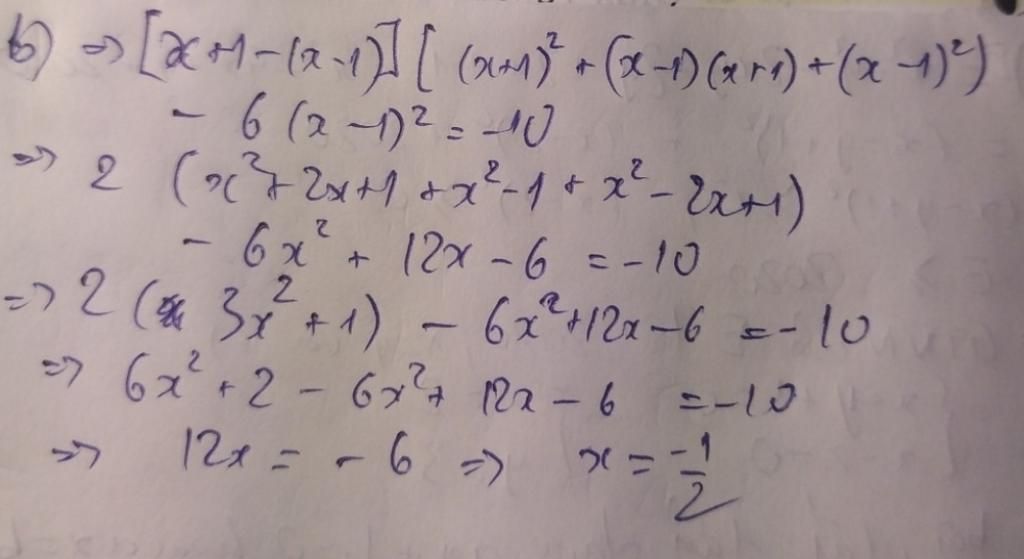 b) => [x+1-(x-1)] [ (x+1)² + (x-1)(x+1) + (x-1)²)
- 6(x-1)² = -10
=> 2 (x²+2x+1 +x²-1 + x²-2x+1)
- 6x² + 12x - 6 = -10
=> 2 ( 3x² + 1) - 6x²+12x-6 = -10
=> 6x² + 2 - 6x² + 12x - 6 = -10
=> 12x = - 6 => x = -1/2